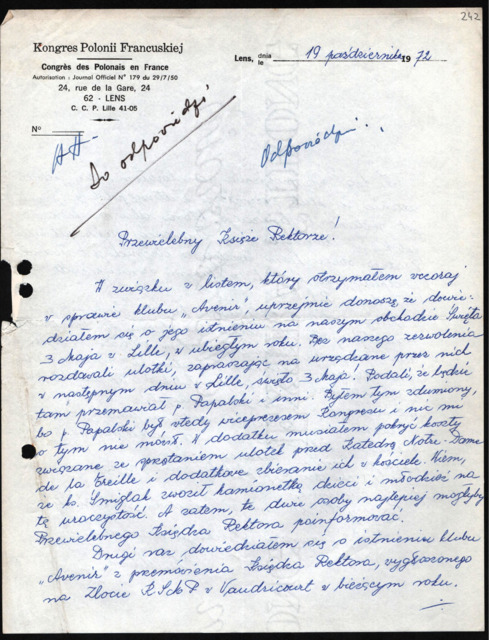 242
Kongres Polonii Francuskiej
Congrès des Polonais en France
Autorisation : Journal Officiel N° 179 du 29/7/50
24, rue de la Gare, 24
62 - LENS
C. C. P. Lille 41-05
Lens, dnia le 19 października 1972
N°
Do odpowiedzi
Odpowiedzi
Przewielebny Księże Rektorze!
W związku z listem, który otrzymałem wczoraj
w sprawie klubu „Avenir", uprzejmie donoszę że dowie-
działem się o jego istnieniu na naszym obchodzie Święta
3 Maja w Lille, w ubiegłym roku. Bez naszego zezwolenia
rozdawali ulotki, zapraszając na urządzane przez nich
w następnym dniu w Lille, święto 3 Maja! Podali, że będzie
tam przemawiał p. Papalski i inni. Byłem tym zdumiony,
bo p. Papalski był wtedy wiceprezesem Kongresu i nic mi
o tym nie mówił. W dodatku musiałem pokryć koszty
związane ze sprzątaniem ulotek przed Katedrą Notre-Dame
de la Treille i dodatkowe zbieranie ich w kościele. Wiem,
że ks. Smiglak zwoził kamionetką dzieci i młodzież na
tę uroczystość. A zatem, te dwie osoby najlepiej mogłyby
Przewielebnego Księdza Rektora poinformować.
Drugi raz dowiedziałem się o istnieniu klubu
„Avenir" z przemówienia Księdza Rektora, wygłoszonego
na Zlocie KSMP w Vaudricourt w bieżącym roku.